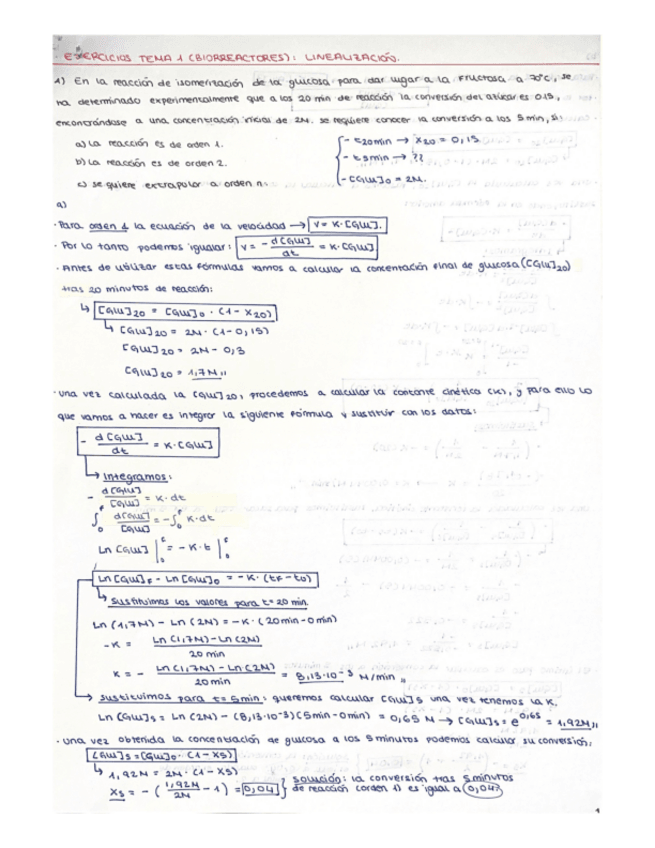 EJERCICIOS TEMA 1 (BIORREACTORES): LINEALIZACIÓN.
1) En la reacción de isomerización de la glucosa para dar lugar a la fructosa a 70ºC, se
ha determinado experimentalmente que a los 20 min de reacción la conversión del azúcar es 0.15,
encontrándose a una concentración inicial de 2M. se requiere conocer la conversión a los 5 min, si:
a) La reacción es de orden 1.
b) La reacción es de orden 2.
c) se quiere extrapolar a orden n.
- t20min → X20 = 0,15
- t5min → ??
- [Glu]0 = 2M.
a)
· Para orden 1 la ecuación de la velocidad → v = K·[Glu].
· Por lo tanto podemos igualar: v = - d[Glu]/dt = K·[Glu]
· Antes de utilizar estas fórmulas vamos a calcular la concentración final de glucosa ([Glu]20)
tras 20 minutos de reacción:
↳ [Glu]20 = [Glu]0 · (1-X20)
↳ [Glu]20 = 2M · (1-0,15)
[Glu]20 = 2M - 0,3
[Glu]20 = 1,7M
· una vez calculada la [Glu]20, procedemos a calcular la contante cinética (K), y para ello lo
que vamos a hacer es integrar la siguiente fórmula y sustituir con los datos:
- d[Glu]/dt = K·[Glu]
→ Integramos:
- d[Glu]/[Glu] = K·dt
∫0^F d[Glu]/[Glu] = -∫0^F K·dt
Ln [Glu] |0^F = -K·t |0^F
Ln [Glu]F - Ln [Glu]0 = -K·(tF-t0)
↳ Sustituimos los valores para t=20 min.
Ln (1,7M) - Ln (2M) = -K·(20min-0min)
-K = Ln(1,7M)-Ln(2M) / 20 min
K = - Ln(1,7M)-Ln(2M) / 20min = 8,13·10⁻³ M/min
→ Sustituimos para t=5min: queremos calcular [Glu]5 una vez tenemos la K.
Ln [Glu]5 = Ln (2M) - (8,13·10⁻³)(5min-0min) = 0,65 M → [Glu]5 = e^0,65 = 1,92M
· una vez obtenida la concentración de glucosa a los 5 minutos podemos calcular su conversión:
[Glu]5 = [Glu]0 · (1-X5)
↳ 1,92M = 2M · (1-X5)
X5 = - (1,92M/2M - 1) = 0,04
solución: la conversión tras 5 minutos
de reacción (orden 1) es igual a 0,04.
1